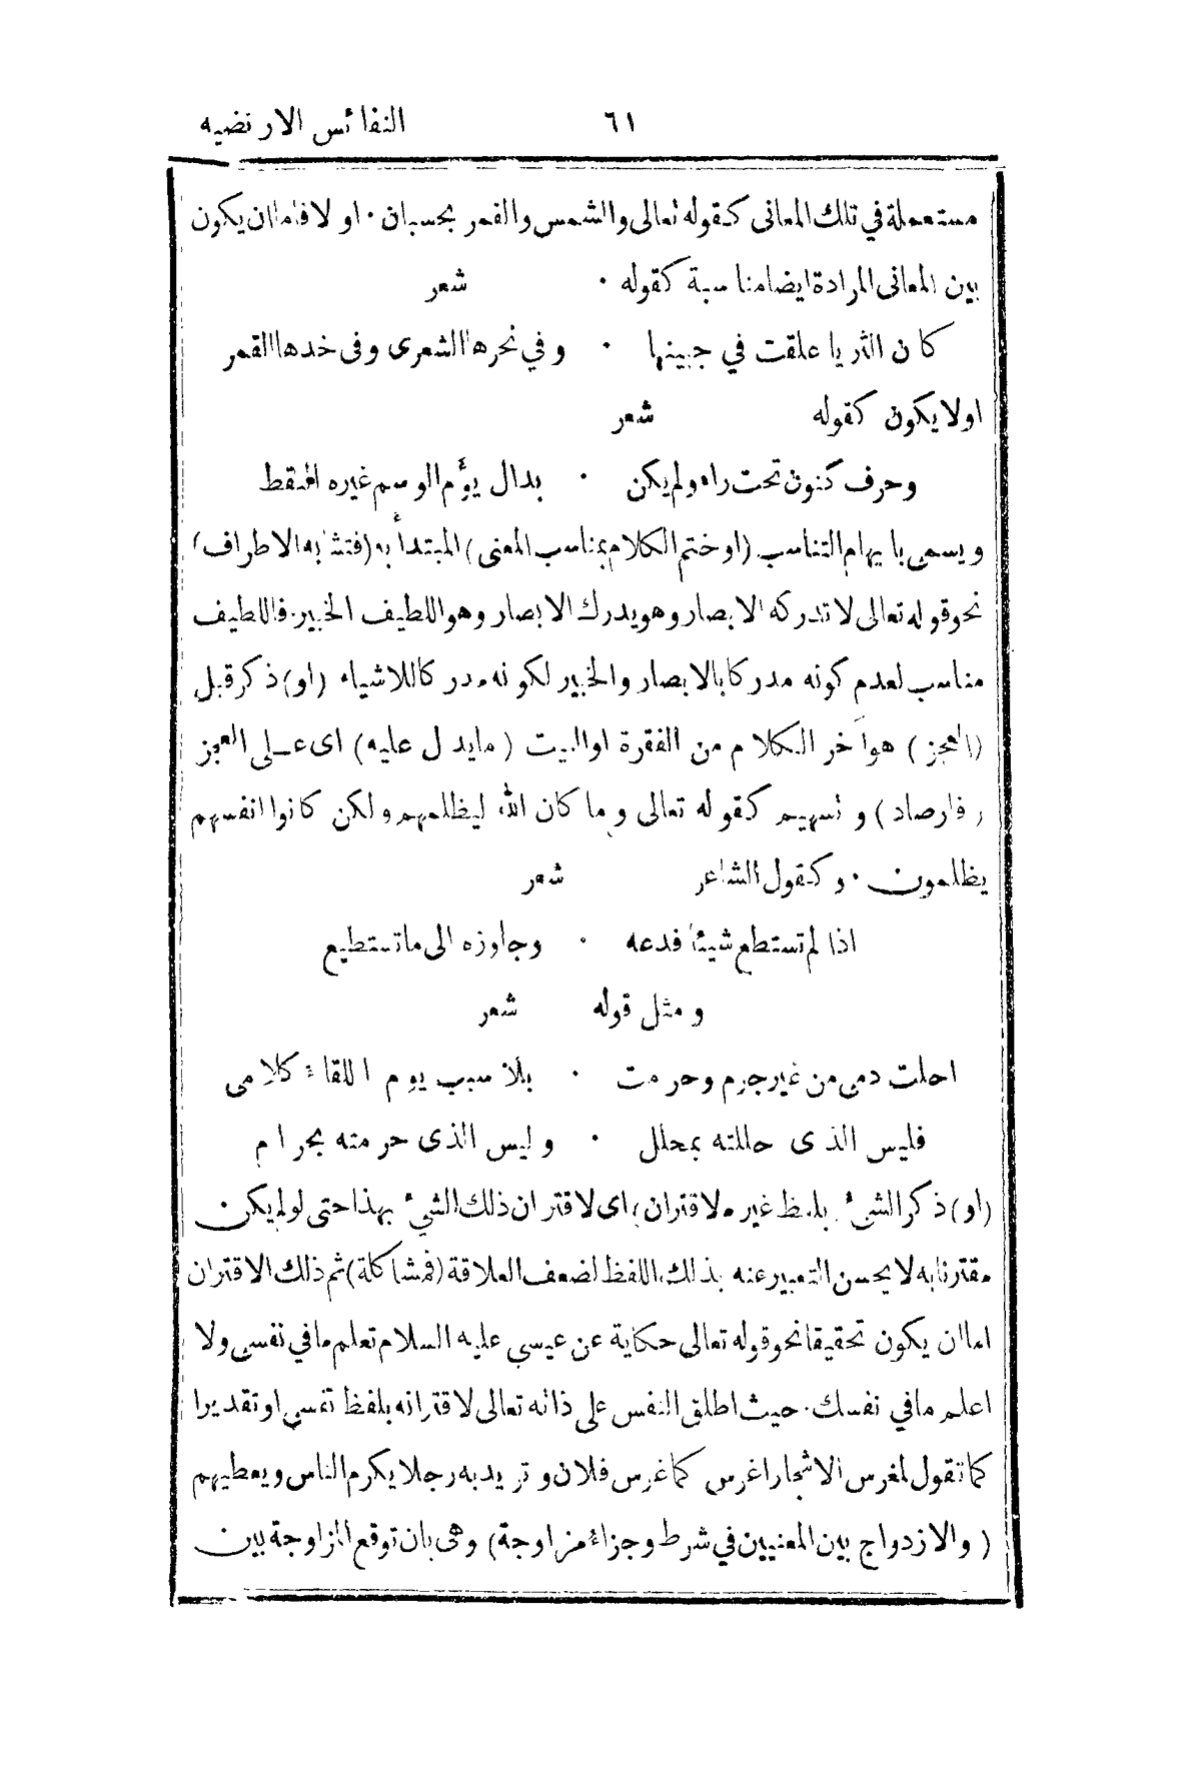 ٦١ النفائس الارتضيه
مستعملة في تلك المعانى كقوله تعالى والشمس والقمر بحسبان · اولا فاما ان يكون
بين المعانى المرادة ايضا مناسبة كقوله · شعر
كان الثريا علقت في جبينها · وفي نحرها الشعرى وفى خدها القمر
اولا يكون كقوله شعر
وحرف كنون تحت راء ولم يكن · بدال يؤم الرسم غيره النقط
ويسمى بايهام التناسب (او ختم الكلام بمناسب المعنى) المبتدأ به (فتشابه الاطراف)
نحو قوله تعالى لا تدركه الابصار وهو يدرك الابصار وهو اللطيف الخبير · فاللطيف
مناسب لعدم كونه مدركا بالابصار والخبير لكونه مدركا للاشياء (او) ذكر قبل
(العجز) هو آخر الكلام من الفقرة او البيت (مايدل عليه) اى عـلى العجز
(فارصاد) و تسهيم كقوله تعالى وما كان الله ليظلمهم ولكن كانوا انفسهم
يظلمون · وكقول الشاعر شعر
اذا لم تستطع شيئا فدعه · وجاوزه الى ما تستطيع
ومثل قوله شعر
احلت دمى من غير جرم وحرمت · بلا سبب يوم اللقاء كلامى
فليس الذى حللته بمحلل · وليس الذى حرمته بحرام
(او) ذكر الشئ بلفظ غيره لاقتران) اى لاقتران ذلك الشئ بهذا حتى لو لم يكن
مقترنا به لا يحسن التعبير عنه بذلك اللفظ لضعف العلاقة (فمشاكلة) ثم ذلك الاقتران
اما ان يكون تحقيقا نحو قوله تعالى حكاية عن عيسى عليه السلام تعلم ما في نفسى ولا
اعلم مافي نفسك · حيث اطلق النفس على ذاته تعالى لاقترانه بلفظ نفسى او تقديرا
كما تقول لمغرس الاشجار اغرس كما غرس فلان و تريد به رجلا يكرم الناس ويعطيهم
(والازدواج بين المعنيين في شرط وجزاء مزاوجة) وهى بان توقع المزاوجة بين